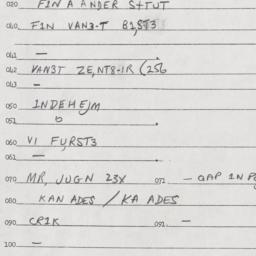 020 FIN A ANDER STTUT
040 FIN VAN3-T BIST3
041 —
042 VAN3T ZE,NT8-IR (256
043 —
050 INDEHEJM
051 b
060 VI FYRST3
061 —
070 MR, JUGN 23X 071. — GAP IN
080 KAN ADES / KA ADES
090 CRIK 091. —
100 —